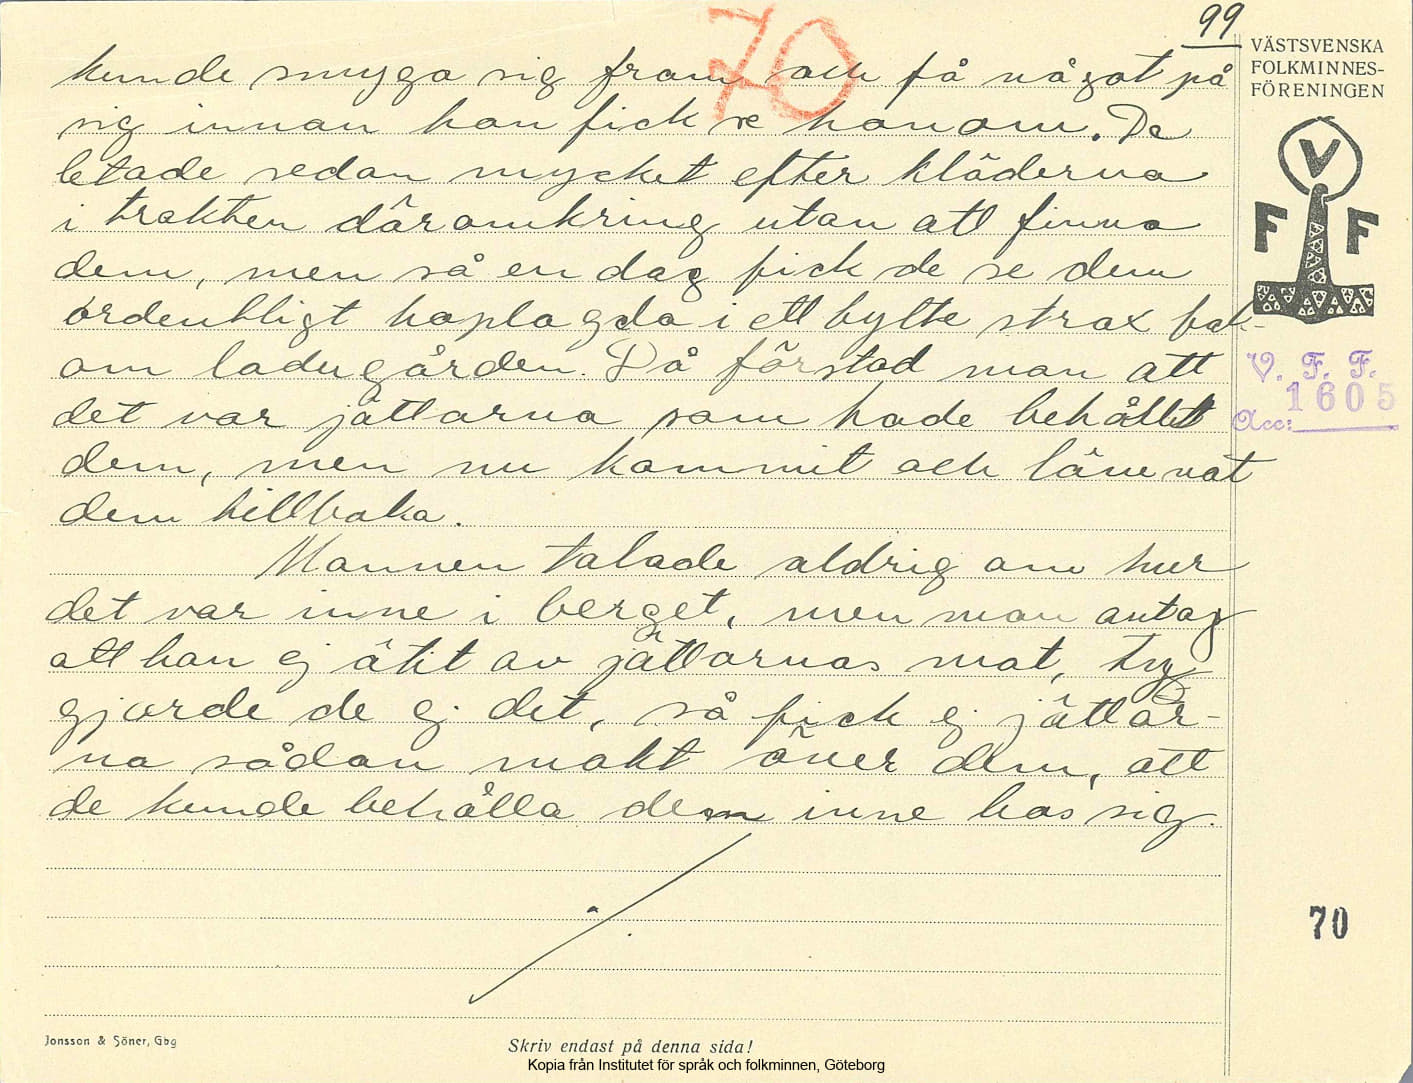 99
70
kunde smyga sig fram och få något på
sig innan hon fick se honom. De
letade sedan mycket efter kläderna
i trakten däromkring utan att finna
dem, men så en dag fick de se dem
ordentligt hoplagda i ett bylte strax bak-
om ladugården. Då förstod man att
det var jättarna som hade behållit
dem, men nu kommit och lämnat
dem tillbaka.
Mannen talade aldrig om hur
det var inne i berget, men man antog
att han ej ätit av jättarnas mat, ty
gjorde de ej det, så fick ej jättar-
na sådan makt över dem, att
de kunde behålla dem inne hos sig.
VÄSTSVENSKA
FOLKMINNES-
FÖRENINGEN
V
F F
V. F. F.
1605
Acc:
70
Jonsson & Söner, Gbg
Skriv endast på denna sida!
Kopia från Institutet för språk och folkminnen, Göteborg